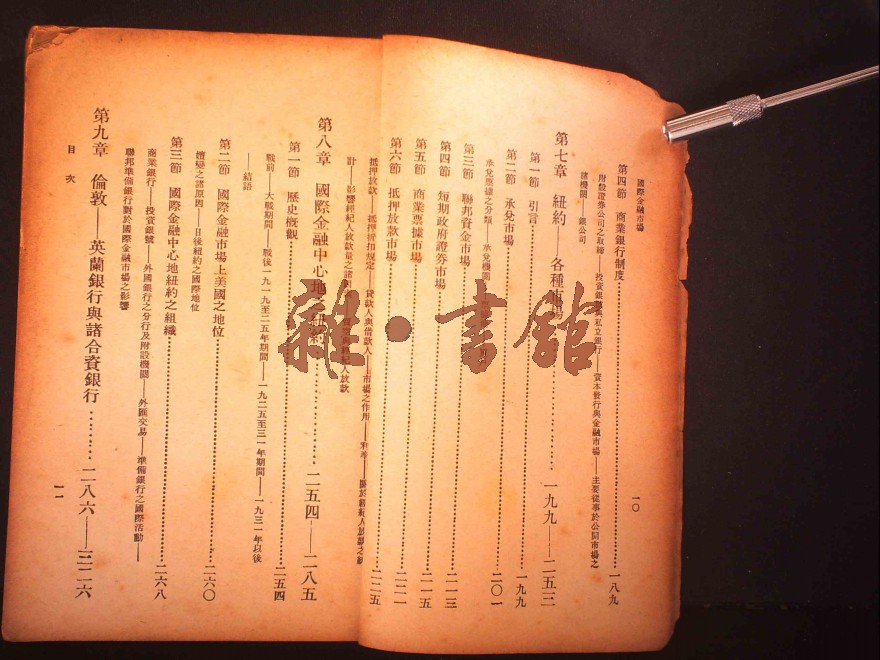 國際金融市場
一〇
第四節 商業銀行制度 一八九
附設證券公司之取締——投資銀行與私立銀行——資本發行與金融市場——主要從事於公開市場之
諸機關——銀公司
第七章 紐約——各種市場 一九九——二五三
第一節 引言 一九九
第二節 承兌市場 二〇一
承兌匯票之分類——承兌機關
第三節 聯邦資金市場 二一三
第四節 短期政府證券市場 二一五
第五節 商業票據市場 二二一
第六節 抵押放款市場 二二五
抵押放款——抵押折扣規定——貸款人與借款人——市場之作用——利率——關於經紀人放款之統
計——影響經紀人放款量之諸 經紀人放款
第八章 國際金融中心地——紐約 二五四——二八五
第一節 歷史概觀 二五四
戰前——大戰期間——戰後一九一九至二五年期間——一九二五至三一年期間——一九三一年以後
——結語
第二節 國際金融市場上美國之地位 二六〇
嬗變之諸原因——日後紐約之國際地位
第三節 國際金融中心地紐約之組織 二六八
商業銀行——投資銀號——外國銀行之分行及附設機關——外匯交易——準備銀行之國際活動——
聯邦準備銀行對於國際金融市場之影響
第九章 倫敦——英蘭銀行與諸合資銀行 二八六——三二六
目次
一一
雜·書館